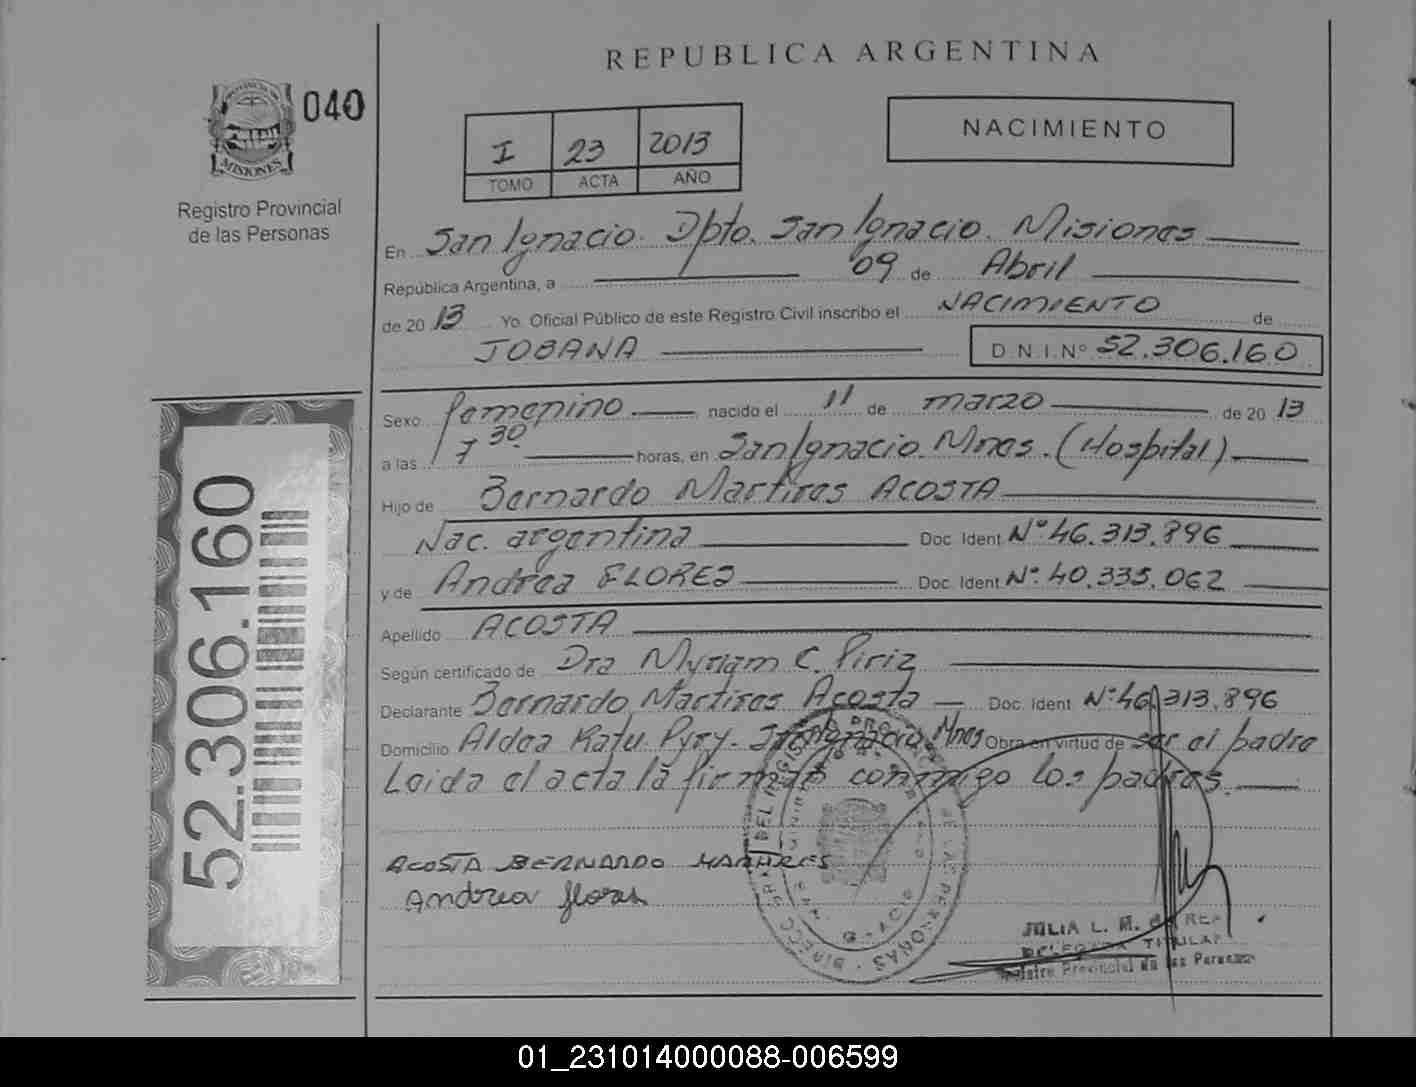 REPUBLICA ARGENTINA
PROVINCIA DE
MISIONES
040
Registro Provincial
de las Personas
I 23 2013
TOMO ACTA AÑO
NACIMIENTO
En San Ignacio. Dpto. San Ignacio. Misiones
República Argentina, a 09 de Abril
de 20 13 Yo. Oficial Público de este Registro Civil inscribo el NACIMIENTO de
JOBANA D.N.I.Nº 52.306.160
Sexo femenino nacido el 11 de marzo de 20 13
a las 7 30 horas, en San Ignacio. Mnes. (Hospital)
Hijo de Bernardo Martires ACOSTA
Nac. argentina Doc. Ident Nº 46.313.896
y de Andrea FLORES Doc. Ident Nº 40.335.062
Apellido ACOSTA
Según certificado de Dra Myriam C. Piriz
Declarante Bernardo Martires Acosta Doc. Ident Nº 46.313.896
Domicilio Aldea Katu Pyry. San Ignacio Mnes Obra en virtud de ser el padre
Leida el acta la firman conmigo los padres.
ACOSTA BERNARDO MARTIRES
Andrea flores
JULIA L. M.
DELEGADA TITULAR
Registro Provincial de las Personas
52.306.160
01_231014000088-006599